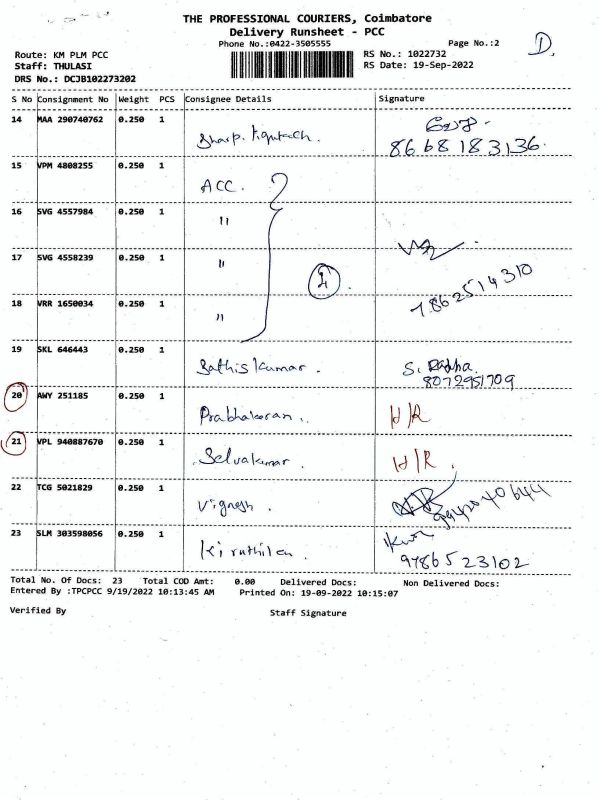 THE PROFESSIONAL COURIERS, Coimbatore
Delivery Runsheet - PCC
Phone No.:0422-3505555
Page No.:2
D.
Route: KM PLM PCC
RS No.: 1022732
Staff: THULASI
RS Date: 19-Sep-2022
DRS No.: DCJB102273202
S No Consignment No Weight PCS Consignee Details Signature
14 MAA 290740762 0.250 1 Sharp.
8668183136.
15 VPM 4808255 0.250 1 ACC.
16 SVG 4557984 0.250 1 "
17 SVG 4558239 0.250 1 "
4
7862514310
18 VRR 1650034 0.250 1 "
19 SKL 646443 0.250 1 Sathiskumar. S. Radha.
8072951709
20 AWY 251185 0.250 1 Prabhakaran. H/R
21 VPL 940887670 0.250 1 Selvakumar. H/R.
22 TCG 5021829 0.250 1 Vignesh.
23 SLM 303598056 0.250 1
9786523102
Total No. Of Docs: 23 Total COD Amt: 0.00 Delivered Docs: Non Delivered Docs:
Entered By :TPCPCC 9/19/2022 10:13:45 AM Printed On: 19-09-2022 10:15:07
Verified By Staff Signature